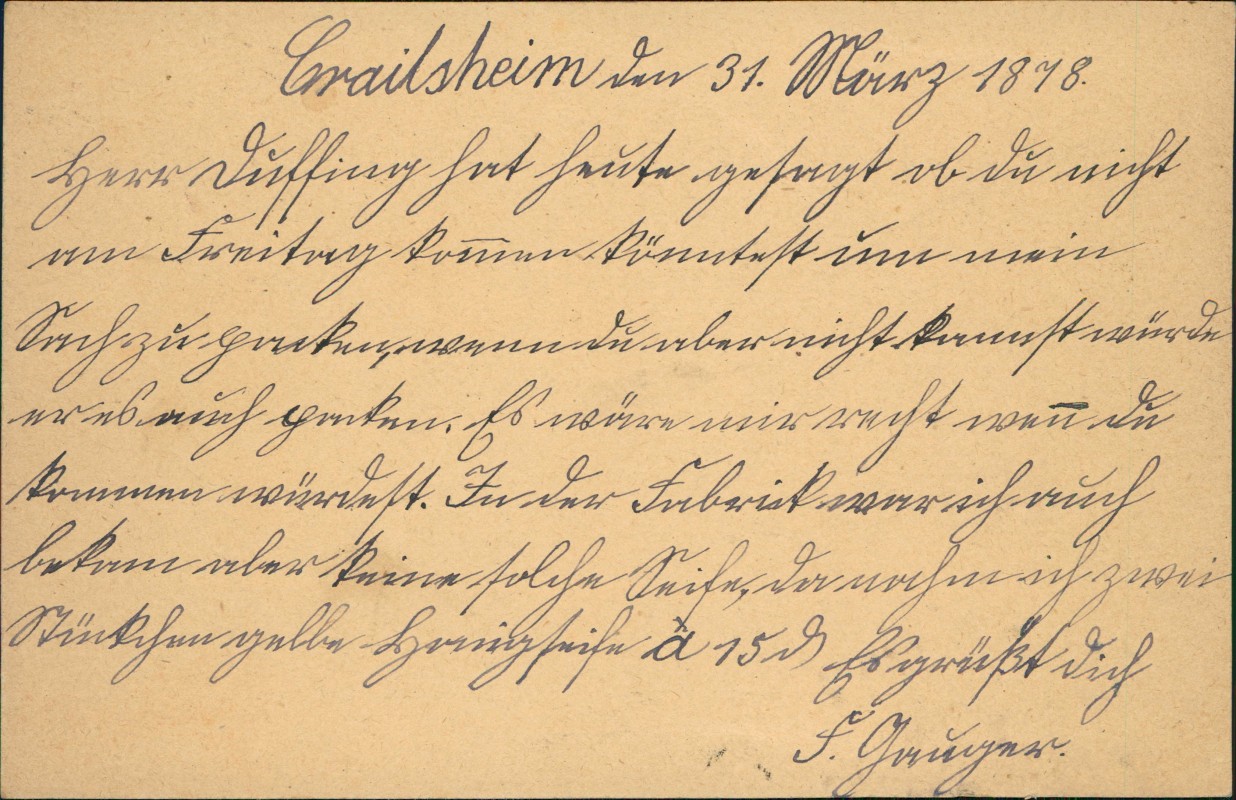 Crailsheim den 31. März 1878.
Herr Duffing hat heute gesagt ob du nicht
am Freitag kom̄en könntest um mein
Sach zu packen, wenn du aber nicht kannst würde
er es auch packen. Es wäre mir recht wen̄ du
kommen würdest. In der Fabrick war ich auch
bekam aber keine solche Seife, da nahm ich zwei
Stückchen gelbe Honigseife à 15 d Es grüßt dich
F. Gauger.